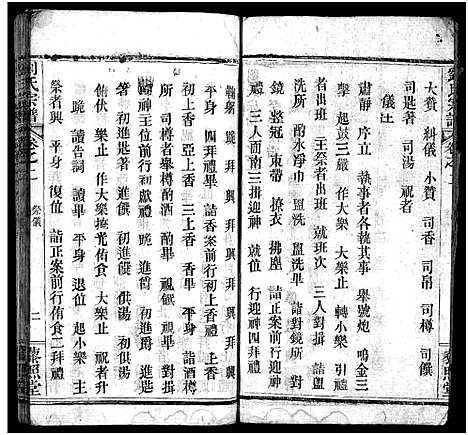 劉氏宗譜
卷之二
大贊 糾儀 小贊 司香 司帛 司樽 司饌
司匙著 司湯 司祝者
儀注
肅靜 序立 執事者各執其事 舉號炮 鳴金三
擊 起鼓三嚴 作大樂 大樂止 轉小樂 引禮
者出班 主祭者出班 就班次 三人對揖 詣盥
洗所 酌水淨巾 盥洗 盥洗畢 詣對鏡所 對
鏡 整冠 束帶 撩衣 拂塵 詣正案前行迎神
禮 三人面南三揖迎神 就位 行迎神四拜禮
鞠躬 跪 拜興 拜興 拜興 拜興
平身 四拜禮畢 詣正案前行上香禮 跪 上香
初上香 亞上香 三上香 香畢 平身 詣酒樽
所 司樽者舉樽酌酒 酌畢 視饌 視畢 對揖
詣神王位前行初獻禮 跪 進爵 初進爵 進匙
箸 初進匙著 進饌 初進饌 供湯 初供湯
俯伏 樂止 作大樂撓光侑食 大樂止 視祝
跪 讀告詞 讀畢 平身 退位 起小樂 主
祭者興 平身 復位 詣正案前行侑食二拜禮
劉氏宗譜
卷之二
祭儀
二
藜照堂